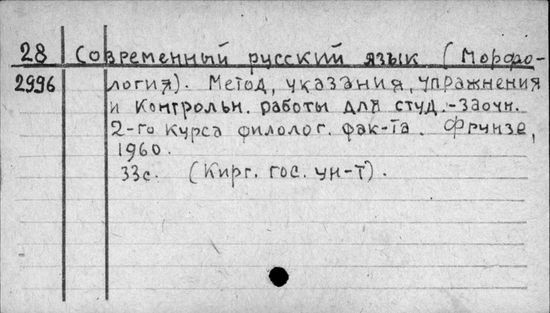 28 Современный русский язык (Морфо-
2996 логия). Метод, указания, упражнения
и контрольн. работы для студ.-заочн.
2-го курса филолог. фак-та. Фрунзе,
1960.
33с. (Кирг. гос. ун-т).